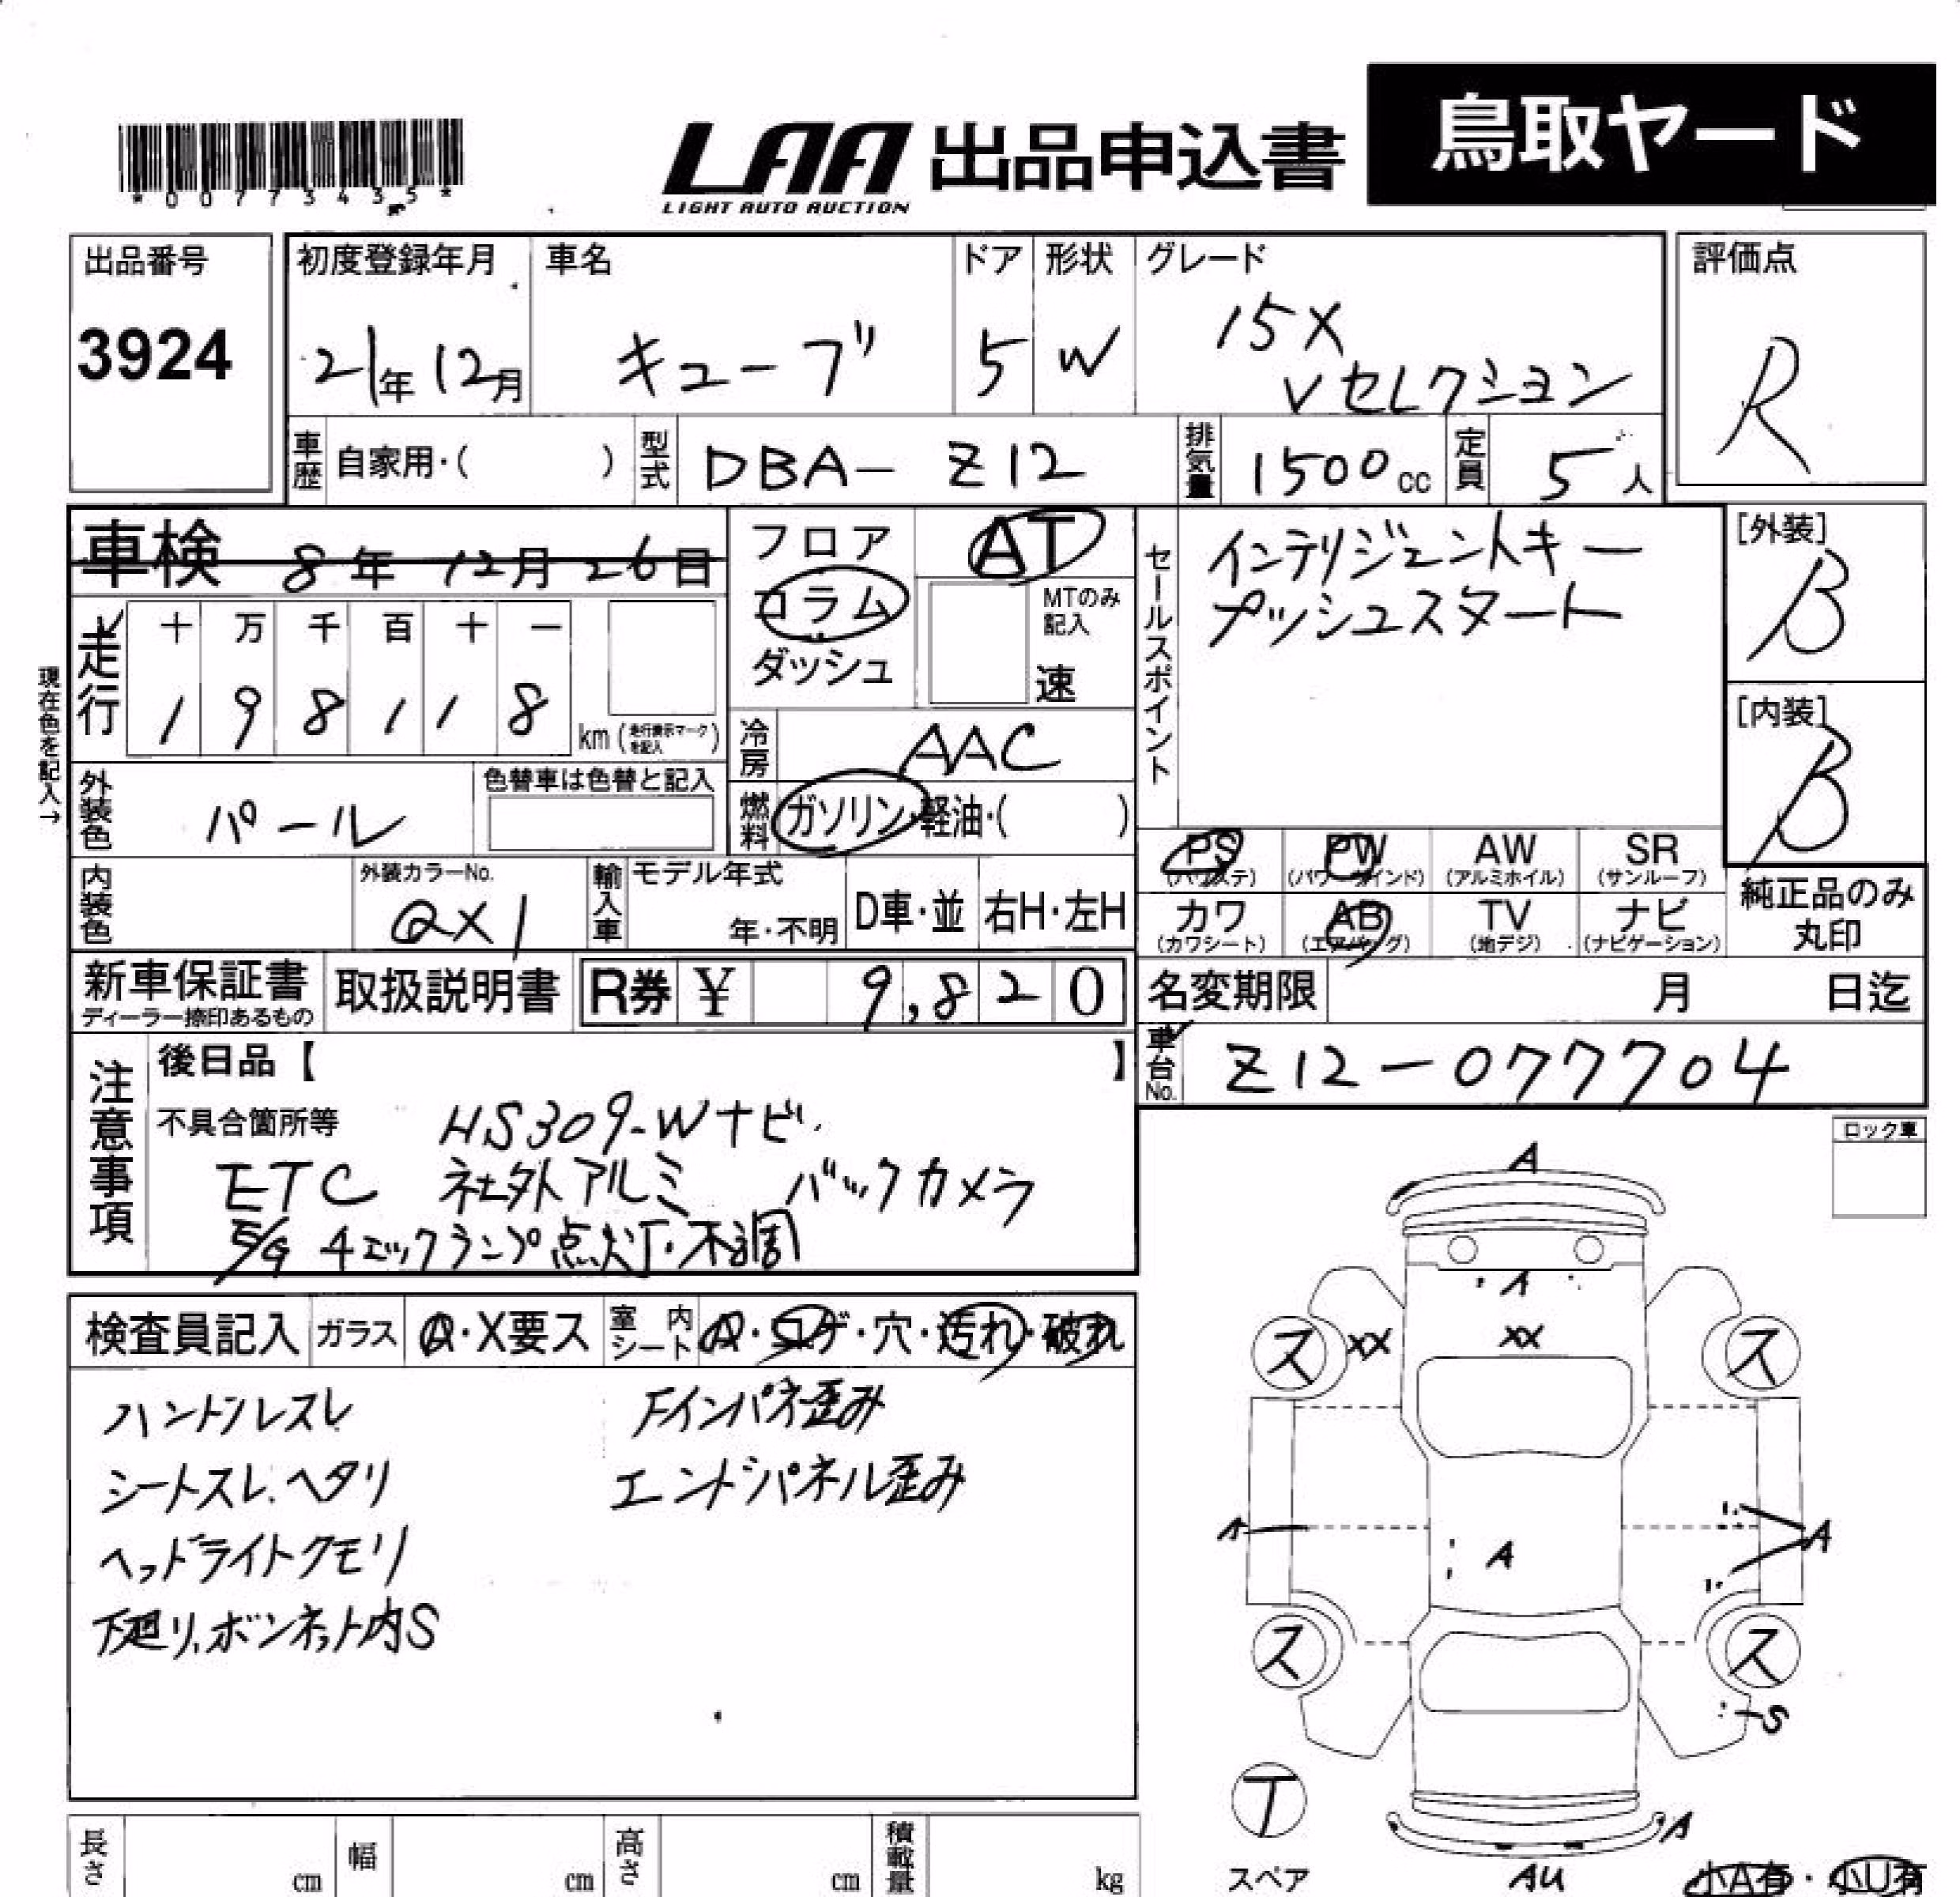 *0077343_5*
LAA 出品申込書 鳥取ヤード
LIGHT AUTO AUCTION
出品番号 初度登録年月 車名 ドア 形状 グレード 評価点
3924 21年12月 キューブ 5 W 15X
Vセレクション R
車歴 自家用・( ) 型式 DBA- Z12 排気量 1500cc 定員 5人
車検 8年 12月 26日
フロア AT
コラム MTのみ記入
ダッシュ 速
セールスポイント
インテリジェントキー
プッシュスタート
[外装]
B
[内装]
B
現在色を記入→
走行 十 万 千 百 十 一
1 9 8 1 1 8 km (走行表示マークを記入)
冷房 AAC
外装色 パール 色替車は色替と記入
燃料 ガソリン・軽油・( )
PS (パワステ) PW (パワーウインド) AW (アルミホイル) SR (サンルーフ)
カワ (カワシート) AB (エアバッグ) TV (地デジ) ナビ (ナビゲーション)
純正品のみ
丸印
内装色 外装カラーNo. QX1 輸入車 モデル年式 年・不明 D車・並 右H・左H
新車保証書 取扱説明書 R券 ¥ 9,820
ディーラー捺印あるもの
名変期限 月 日迄
車台No. Z12-077704
注意事項
後日品【 】
不具合箇所等 HS309-Wナビ
ETC 社外アルミ バックカメラ
E/G チェックランプ点灯・不調
ロック車
検査員記入 ガラス A・X要ス 室内シート A・コゲ・穴・汚れ・破れ
ハンドルスレ Fインパネ歪み
シートスレ、ヘタリ エンドパネル歪み
ヘッドライトクモリ
下廻り、ボンネット内S
A
A
XX XX
ス ス
A A A
ス ス
S
T
A
スペア AU 小A有・小U有
長さ cm 幅 cm 高さ cm 積載量 kg